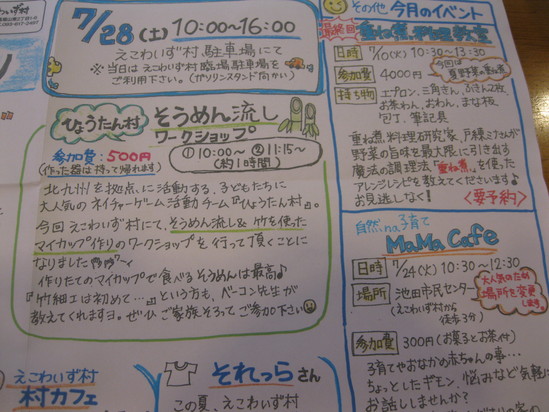 えこわいず村
7/28(土) 10:00~16:00
えこわいず村、駐車場にて
※当日は えこわいず村 臨時 駐車場を
ご利用下さい。(ガソリンスタンド向かい)
ひょうたん村
そうめん流し
ワークショップ
参加費:500円
(作った器は持って帰れます)
①10:00~ ②11:15~
(約1時間)
北九州を拠点に活動する、子どもたちに
大人気のネイチャーゲーム活動チーム『ひょうたん村』。
今回えこわいず村にて、そうめん流し&竹を使った
マイカップ作りのワークショップを行って頂くことに
なりました
作りたてのマイカップで食べるそうめんは最高♪
『竹細工は初めて…』という方も、ベーコン先生が
教えてくれますヨ。ぜひ、ご家族そろってご参加下さい
えこわいず村
村カフェ
それっら さん
この夏、えこわいず村
その他 今月のイベント
最終回
重ね煮お料理教室
日時 7/10(火) 10:30~13:30
参加費 4000円
今回は
夏野菜の重ね煮
持ち物 エプロン、三角きん、ふきん2枚、
お茶わん、おわん、まな板、
包丁、筆記具
重ね煮料理研究家、戸練ミナさんが
野菜の旨味を最大限に引き出す
魔法の調理法「重ね煮」を使った
アレンジレシピを教えてくださいます♪
お見逃しなく! <要予約>
自然na子育て
MaMa Cafe
日時 7/24(火) 10:30~12:30
場所 池田市民センター
(えこわいず村から
徒歩3分)
大人気のため
場所を変更
します。
参加費 300円(お菓子とお茶付)
子育てやおなかの赤ちゃんの事…
ちょっとしたギモン、悩みなど気軽に
お話ししませんか?